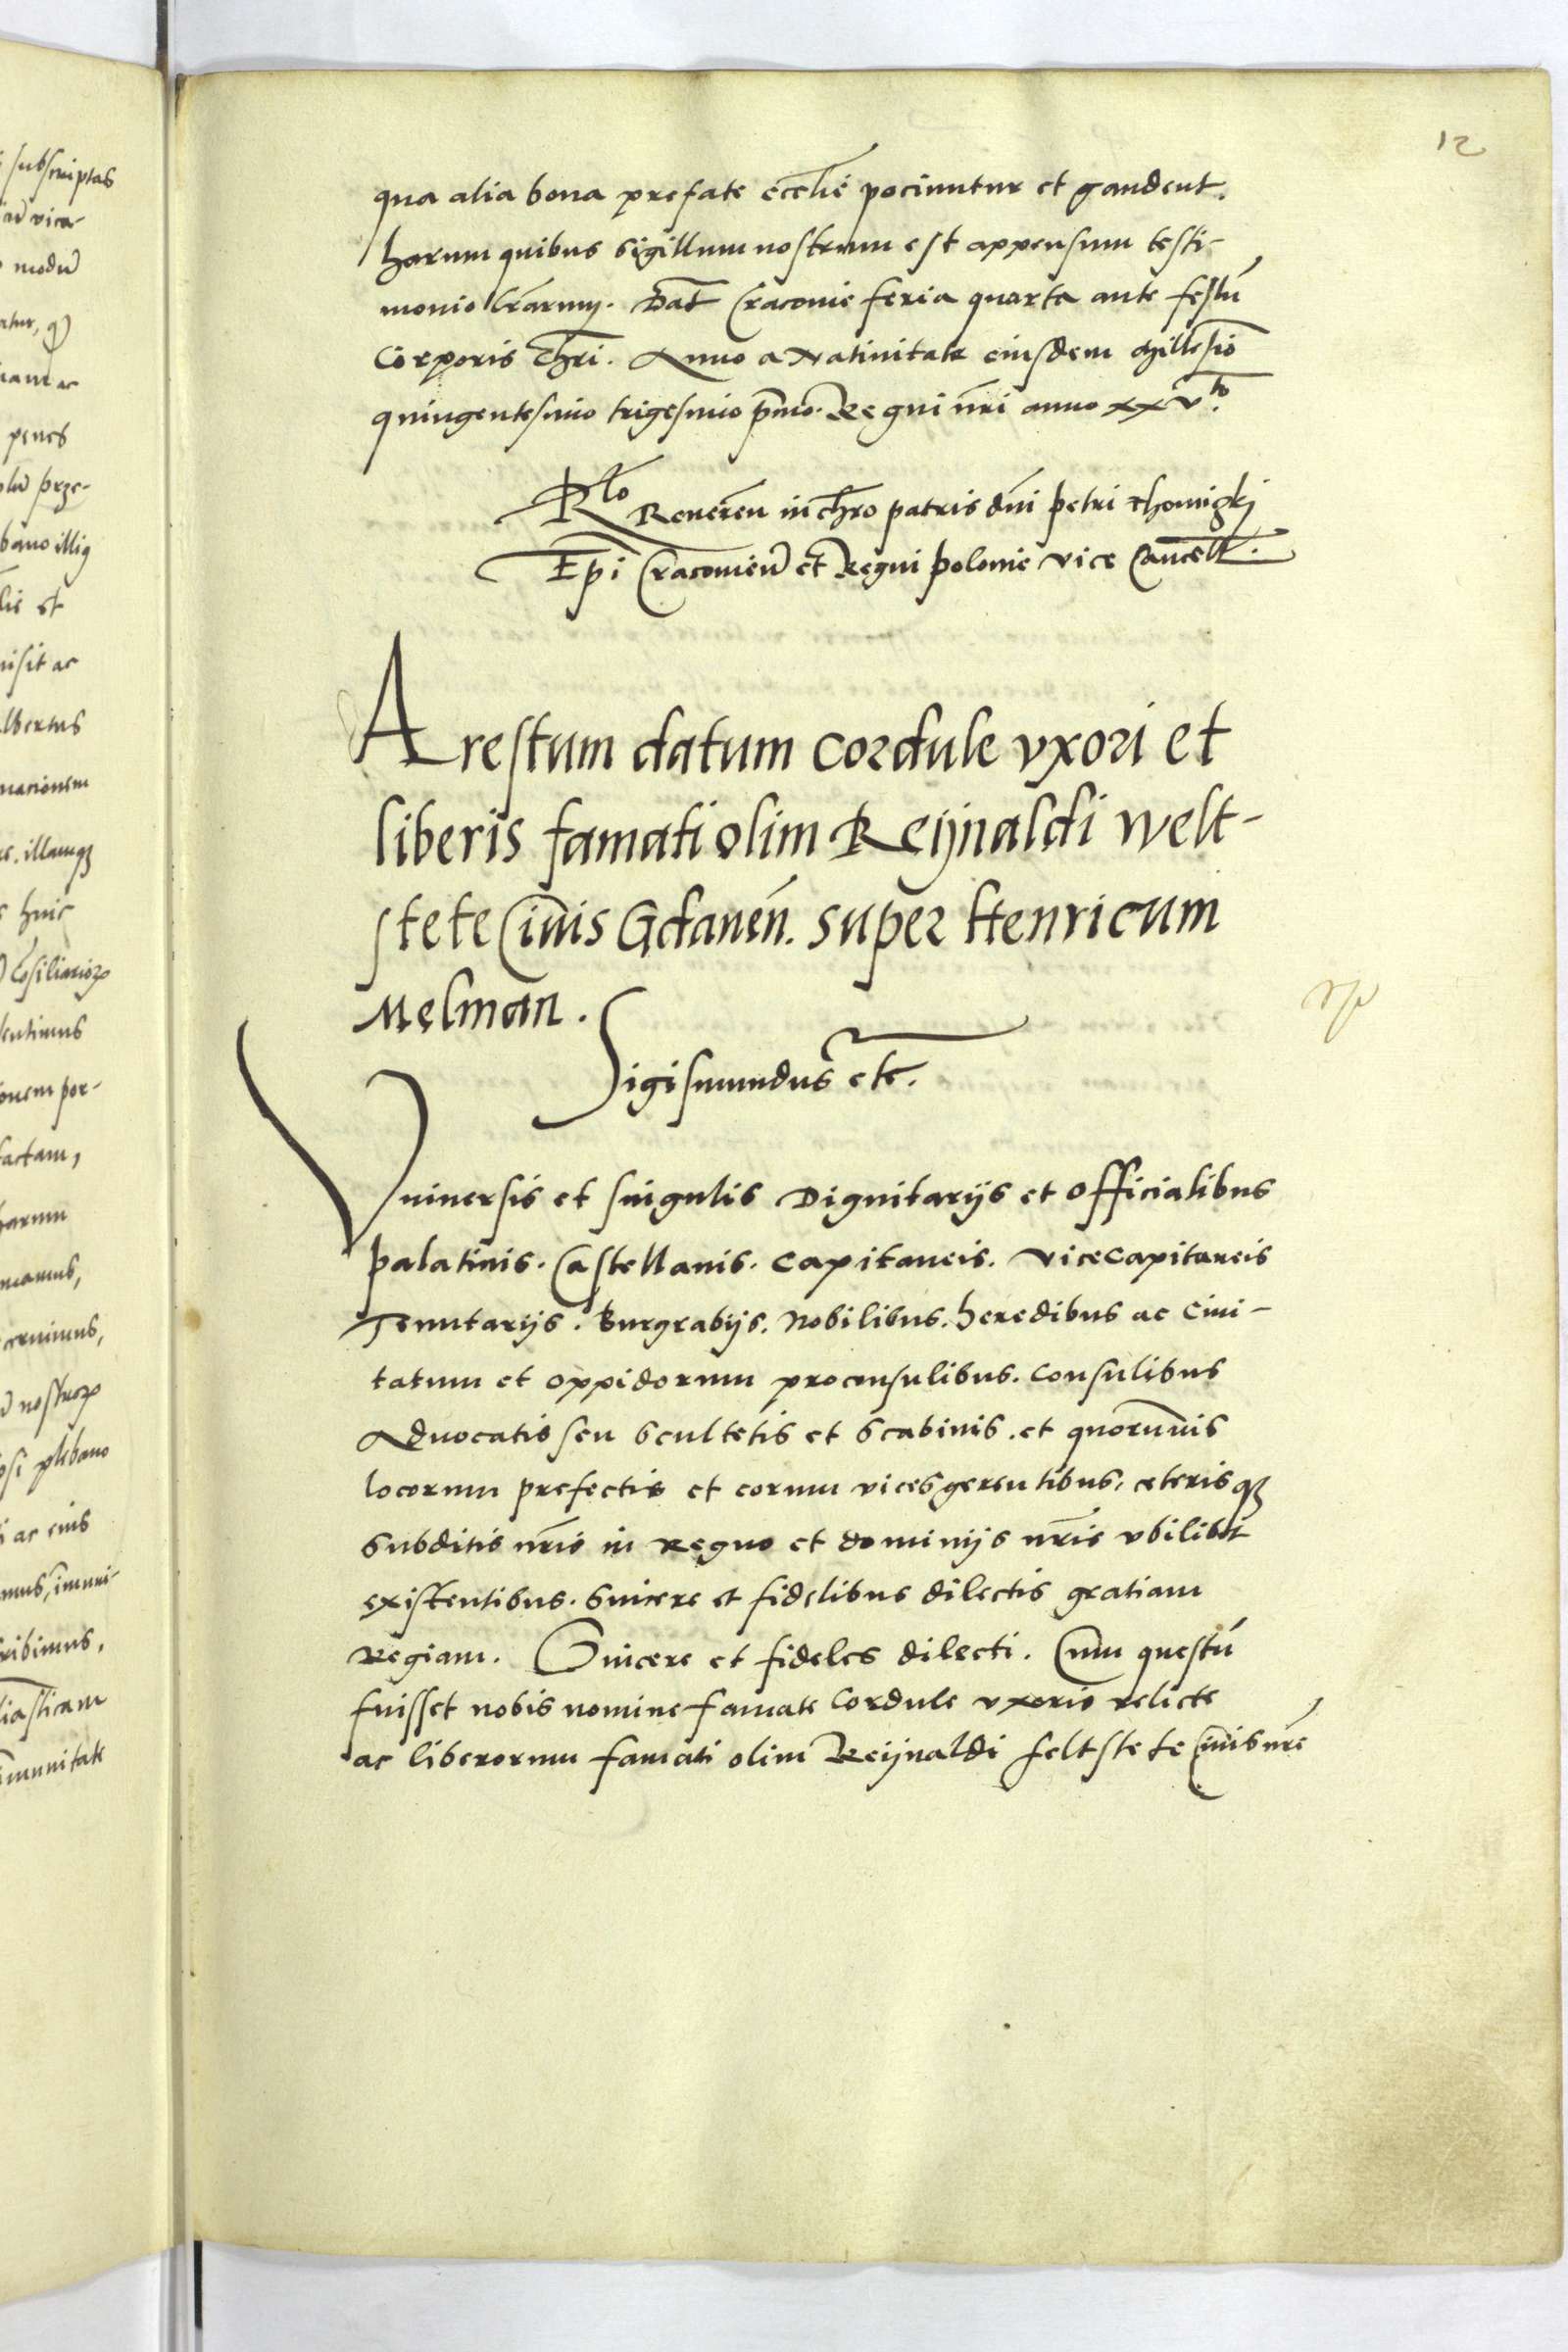 12
qua alia bona prefate eccl̄ie pociuntur et gaudent.
harum quibus sigillum nostrum est appensum testi-
monio l̄rarum. Dat̄ Cracovie feria quarta ante festū
Corporis Chr̄i. Anno a Nativitate eiusdem Millesīo
quingentesimo trigesimo p̄mo. Regni n̄ri anno xxvto.
Rlo Reveren̄ in Chr̄o patris dn̄i Petri Thomiczkj
Ep̄i Cracovien̄ et Regni Polonie Vice Cancell̄.
Arestum datum Cordule vxori et
liberis famati olim Reÿnaldi Welt-
stete Civis Gdanen̄. super Henricum
Melman.
Sigismundus etc.
Vniversis et singulis Dignitarijs et Officialibus
Palatinis. Castellanis. Capitaneis. Vicecapitaneis
Tenutarijs. Burgrabijs. Nobilibus. heredibus ac Civi-
tatum et oppidorum proconsulibus. Consulibus
Advocatis seu Scultetis et Scabinis. et quorumvis
locorum prefectis et eorum vicesgerentibus, ceterisq3
Subditis n̄ris in Regno et dominijs n̄ris vbilibet
existentibus. Sincere et fidelibus dilectis gratiam
Regiam. Sincere et fideles dilecti. Cum questū
fuisset nobis nomine famate Cordule vxoris relicte
ac liberorum famati olim Reÿnaldi feltstete Civis n̄re
subscriptas
modū
penes
lie et
misit ac
lbertus
macionem
illamq3
huic
Cōsiliarior̄
sentimus
factam,
harum
plebano
ac eius
ribimus,
iasticam
immunitate